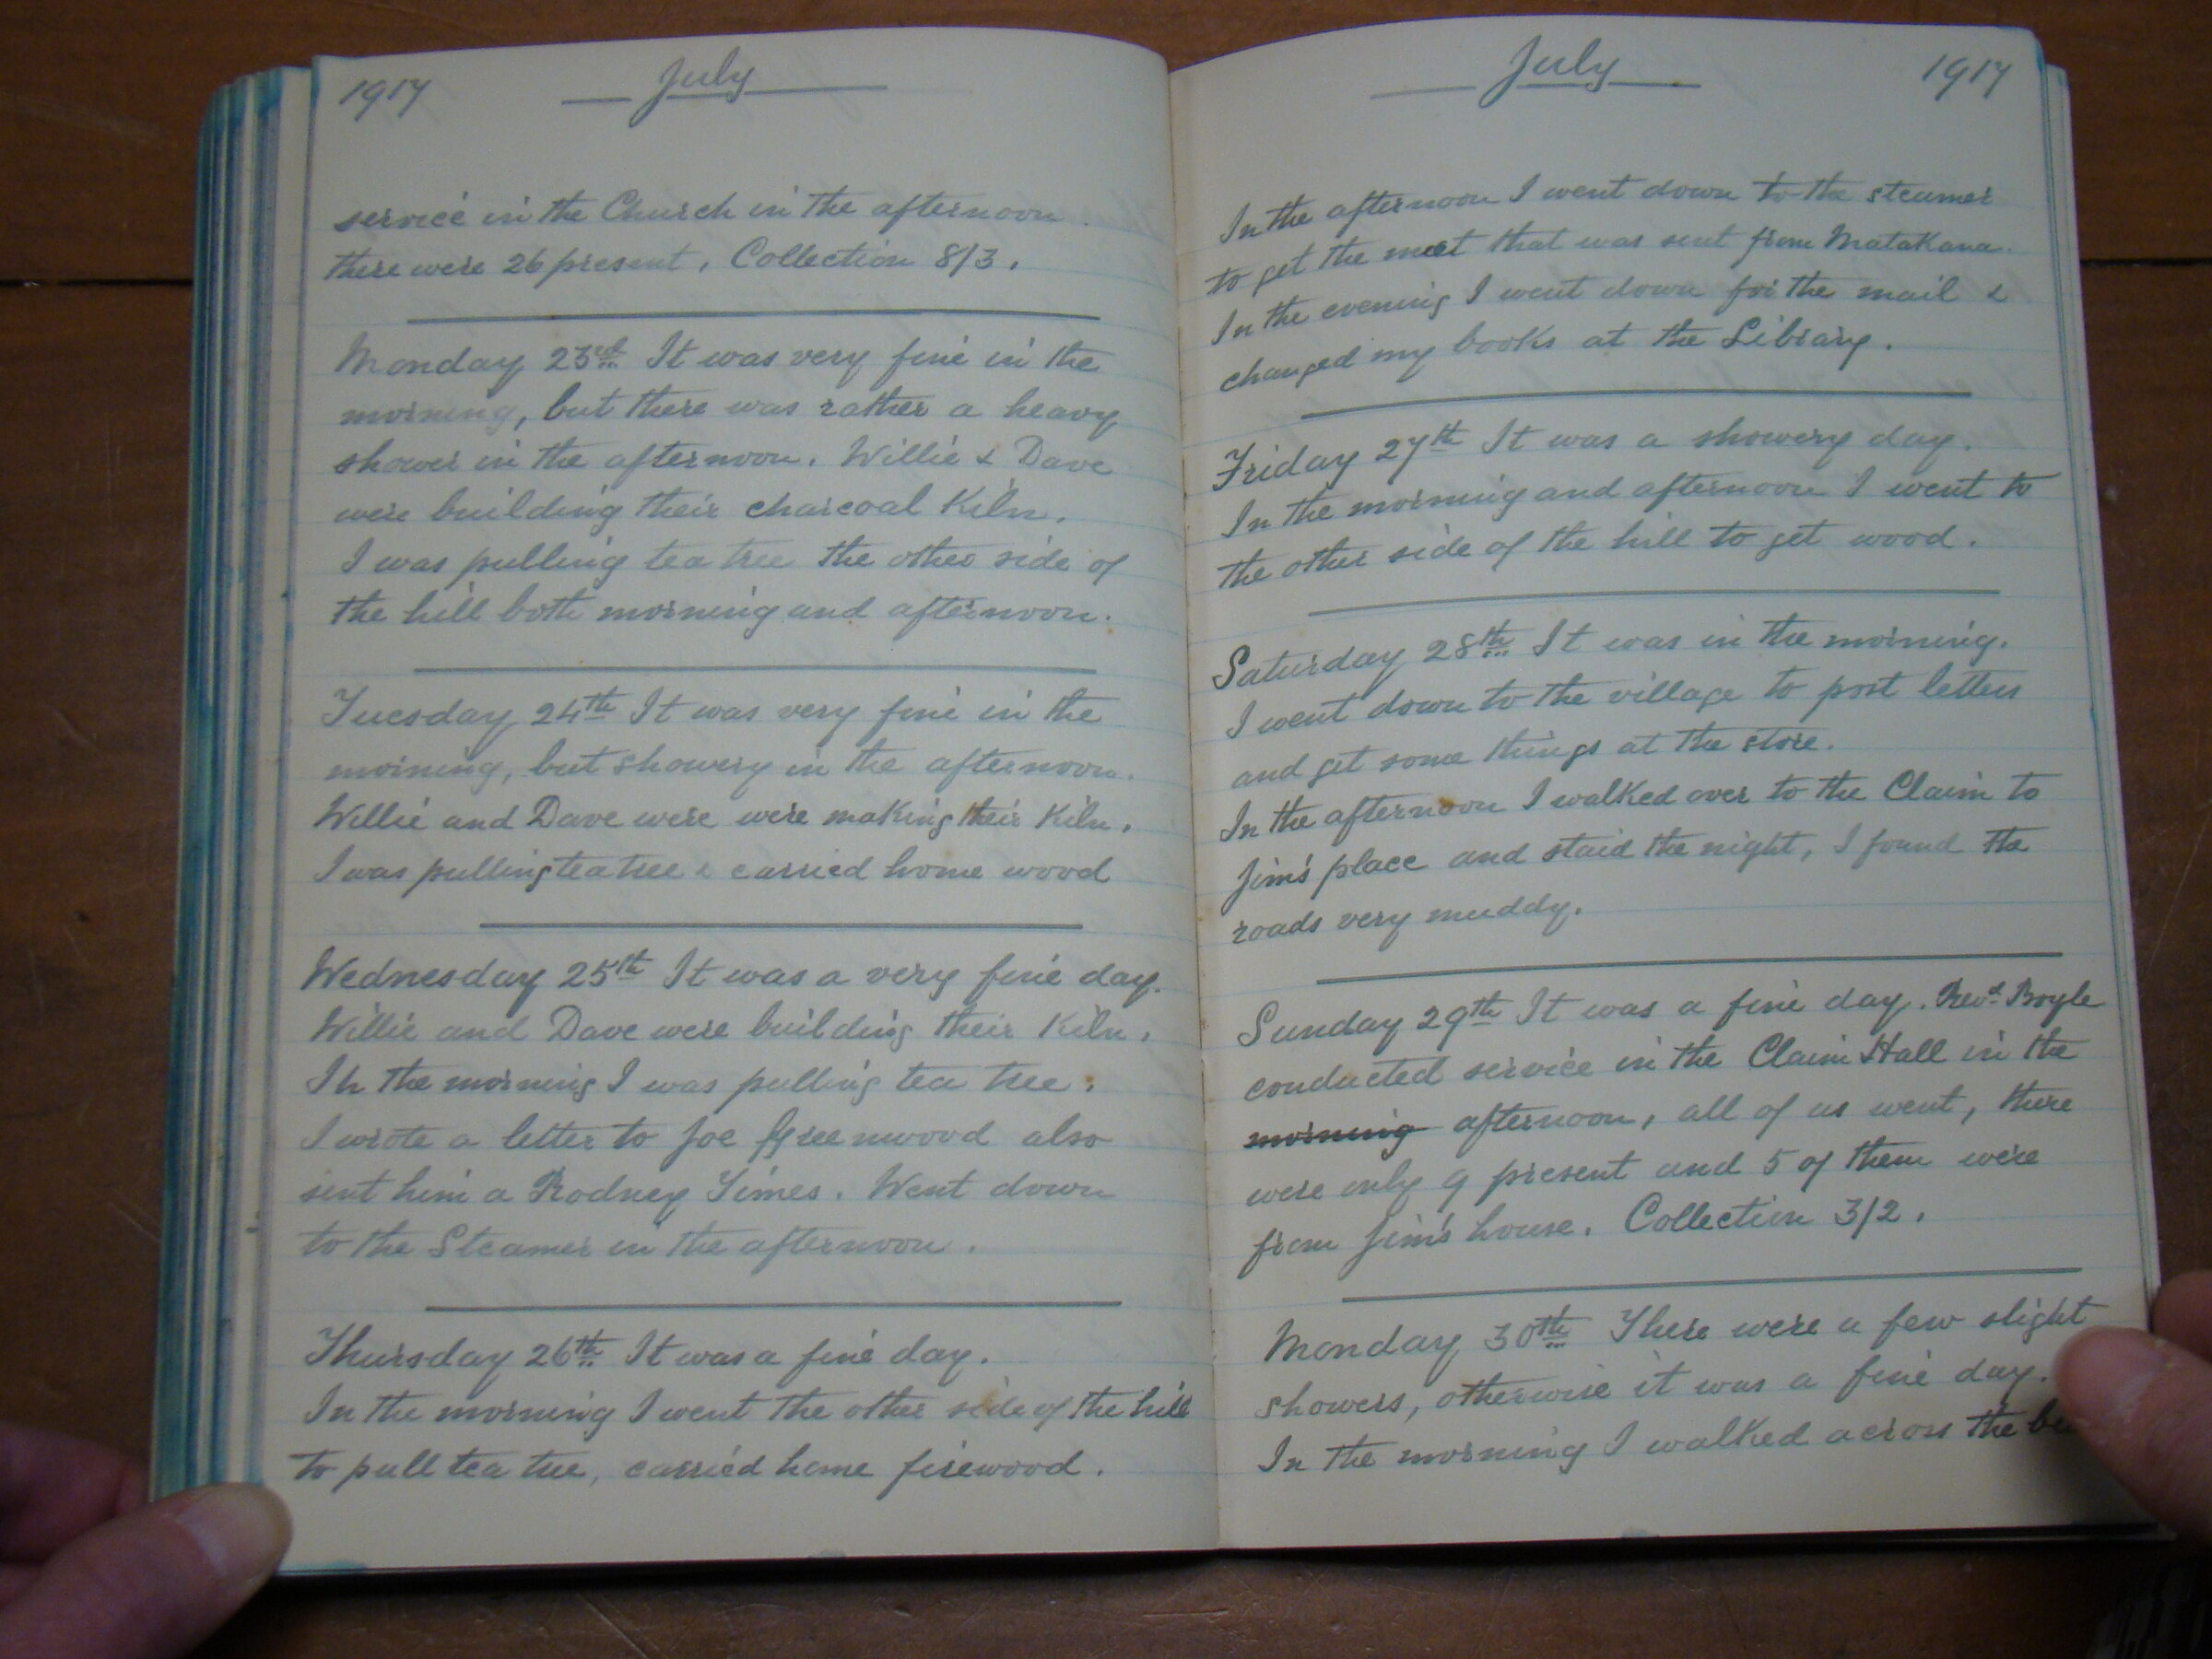 1917 July
service in the Church in the afternoon
there were 26 present, Collection 8/3.
Monday 23rd It was very fine in the
morning, but there was rather a heavy
shower in the afternoon. Willie & Dave
were building their charcoal Kiln.
I was pulling tea tree the other side of
the hill both morning and afternoon.
Tuesday 24th It was very fine in the
morning, but showery in the afternoon.
Willie and Dave were were making their Kiln.
I was pulling tea tree & carried home wood
Wednesday 25th It was a very fine day.
Willie and Dave were building their Kiln.
In the morning I was pulling tea tree.
I wrote a letter to Joe Greenwood also
sent him a Rodney Times. Went down
to the Steamer in the afternoon.
Thursday 26th It was a fine day.
In the morning I went the other side of the hill
to pull tea tree, carried home firewood.
July 1917
In the afternoon I went down to the steamer
to get the meat that was sent from Matakana.
In the evening I went down for the mail &
changed my books at the Library.
Friday 27th It was a showery day.
In the morning and afternoon I went to
the other side of the hill to get wood.
Saturday 28th It was in the morning.
I went down to the village to post letters
and get some things at the store.
In the afternoon I walked over to the Claim to
Jim's place and staid the night, I found the
roads very muddy.
Sunday 29th It was a fine day. Revd Boyle
conducted service in the Claim Hall in the
morning afternoon, all of us went, there
were only 9 present and 5 of them were
from Jim's house. Collection 3/2.
Monday 30th There were a few slight
showers, otherwise it was a fine day.
In the morning I walked across the